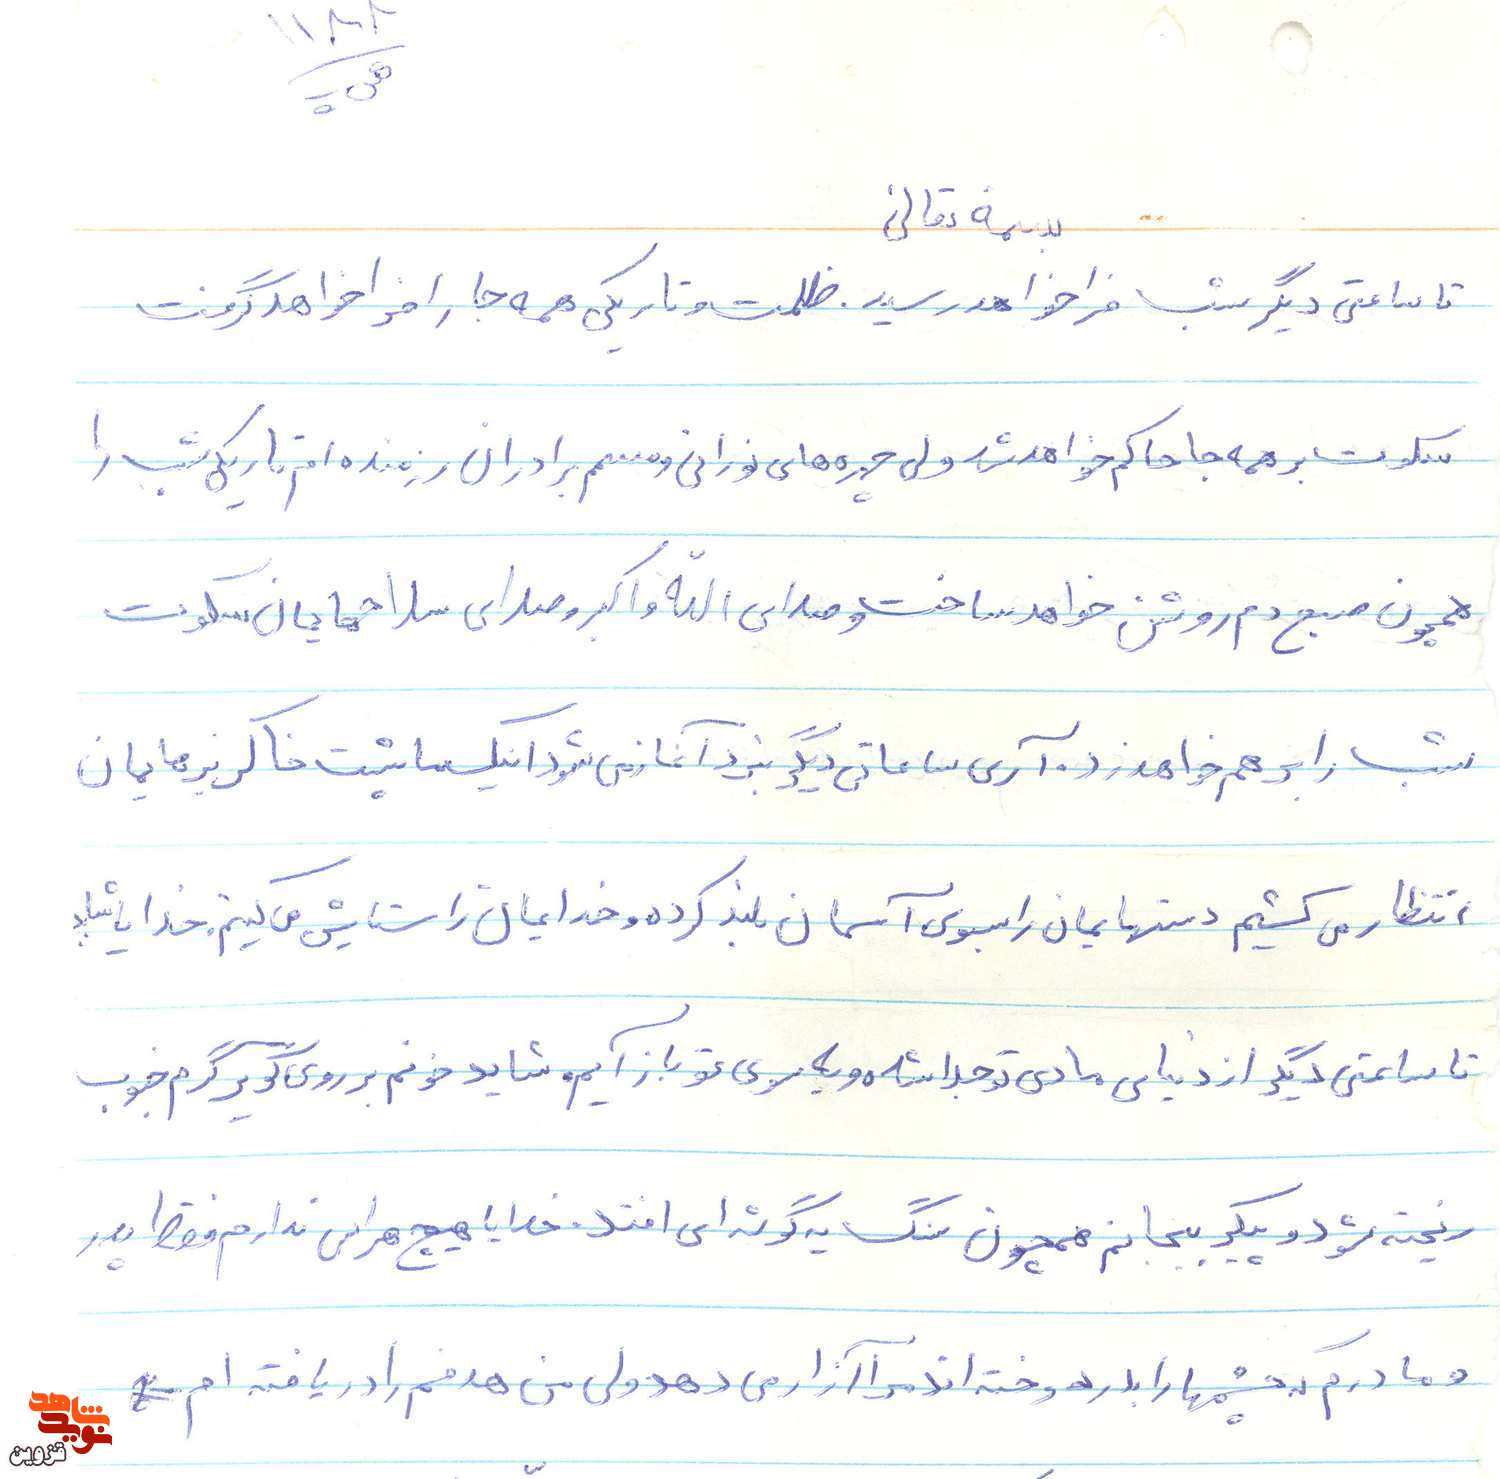 ۱۱۸۸۸
بسمه تعالی
تا ساعتی دیگر شب فرا خواهد رسید. ظلمت و تاریکی همه جا را فرا خواهد گرفت
سکوت بر همه جا حاکم خواهد شد ولی چهره های نورانی و مصمم برادران رزمنده ام تاریکی شب را
همچون صبح دم روشن خواهد ساخت و صدای الله و اکبر و صدای سلاحهایمان سکوت
شب را بر هم خواهد زد. آری ساعاتی دیگر نبرد آغاز می شود اینک ما پشت خاکریزهایمان
انتظار می کشیم دستهایمان را بسوی آسمان بلند کرده و خدایمان را ستایش می کنیم. خدایا شاید
تا ساعتی دیگر از دنیای مادی تو جدا شده و به سوی تو باز آیم. شاید خونم بر روی کویر گرم جنوب
ریخته شود و پیکر بیجانم همچون سنگ به گوشه ای افتد. خدایا هیچ هراسی ندارم فقط پدر
و مادرم که چشمها را بدر دوخته اند مرا آزار می دهد ولی من هدفم را دریافته ام
نوید شاهد
قزوین